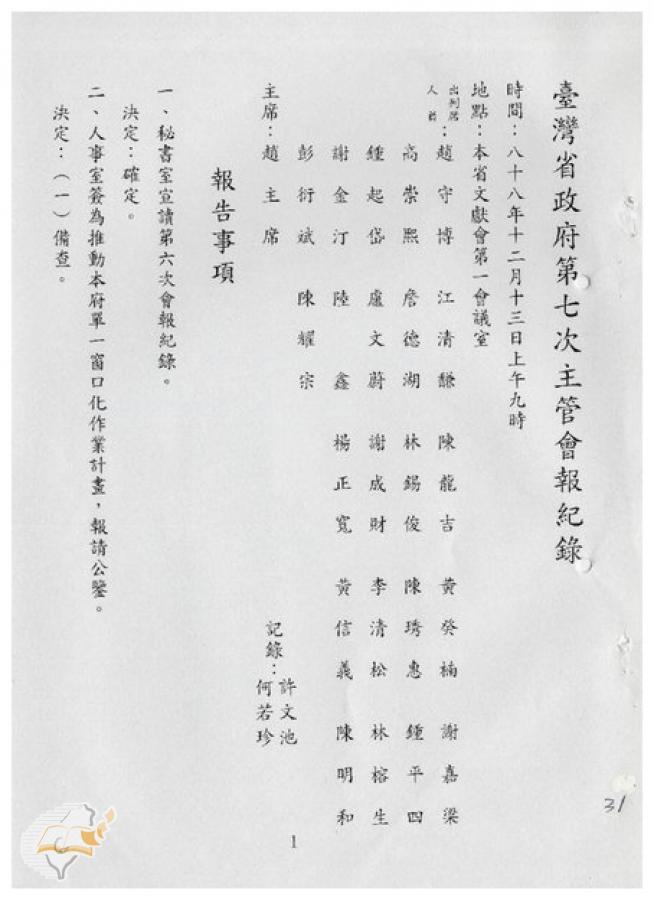 臺灣省政府第七次主管會報紀錄
時間：八十八年十二月十三日上午九時
地點：本省文獻會第一會議室
出列席人員：趙守博　江清馦　陳龍吉　黃癸楠　謝嘉梁
高崇熙　詹德湖　林錫俊　陳琇惠　鍾平四
鍾起岱　盧文蔚　謝成財　李清松　林榕生
謝金汀　陸　鑫　楊正寬　黃信義　陳明和
彭衍斌　陳耀宗
主席：趙主席
記錄：許文池
何若珍
報告事項
一、秘書室宣讀第六次會報紀錄。
決定：確定。
二、人事室簽為推動本府單一窗口化作業計畫，報請公鑒。
決定：（一）備查。
1
31